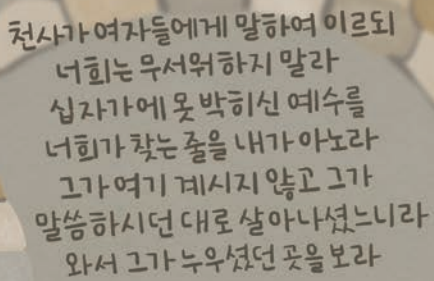 천사가 여자들에게 말하여 이르되
너희는 무서워하지 말라
십자가에 못 박히신 예수를
너희가 찾는 줄을 내가 아노라
그가 여기 계시지 않고 그가
말씀하시던 대로 살아나셨느니라
와서 그가 누우셨던 곳을 보라